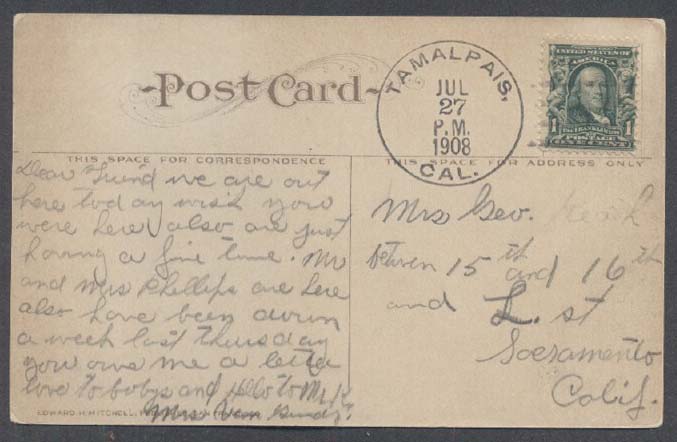 Post Card
TAMALPAIS,
JUL
27
P.M.
1908
CAL.
UNITED STATES OF
AMERICA
1 FRANKLIN 1
POSTAGE ONE CENT
THIS SPACE FOR CORRESPONDENCE
Dear Friend we are out
here today wish you
were here also are just
having a fine time. Mr
and Mrs Phillips are here
also have been down
a week last thursday
you owe me a letter
love to bobys and Hello to Mr K
Mrs Van
EDWARD H. MITCHELL,
THIS SPACE FOR ADDRESS ONLY
Mrs Geo.
between 15th and 16th
and L. st
Socramento
Calif.